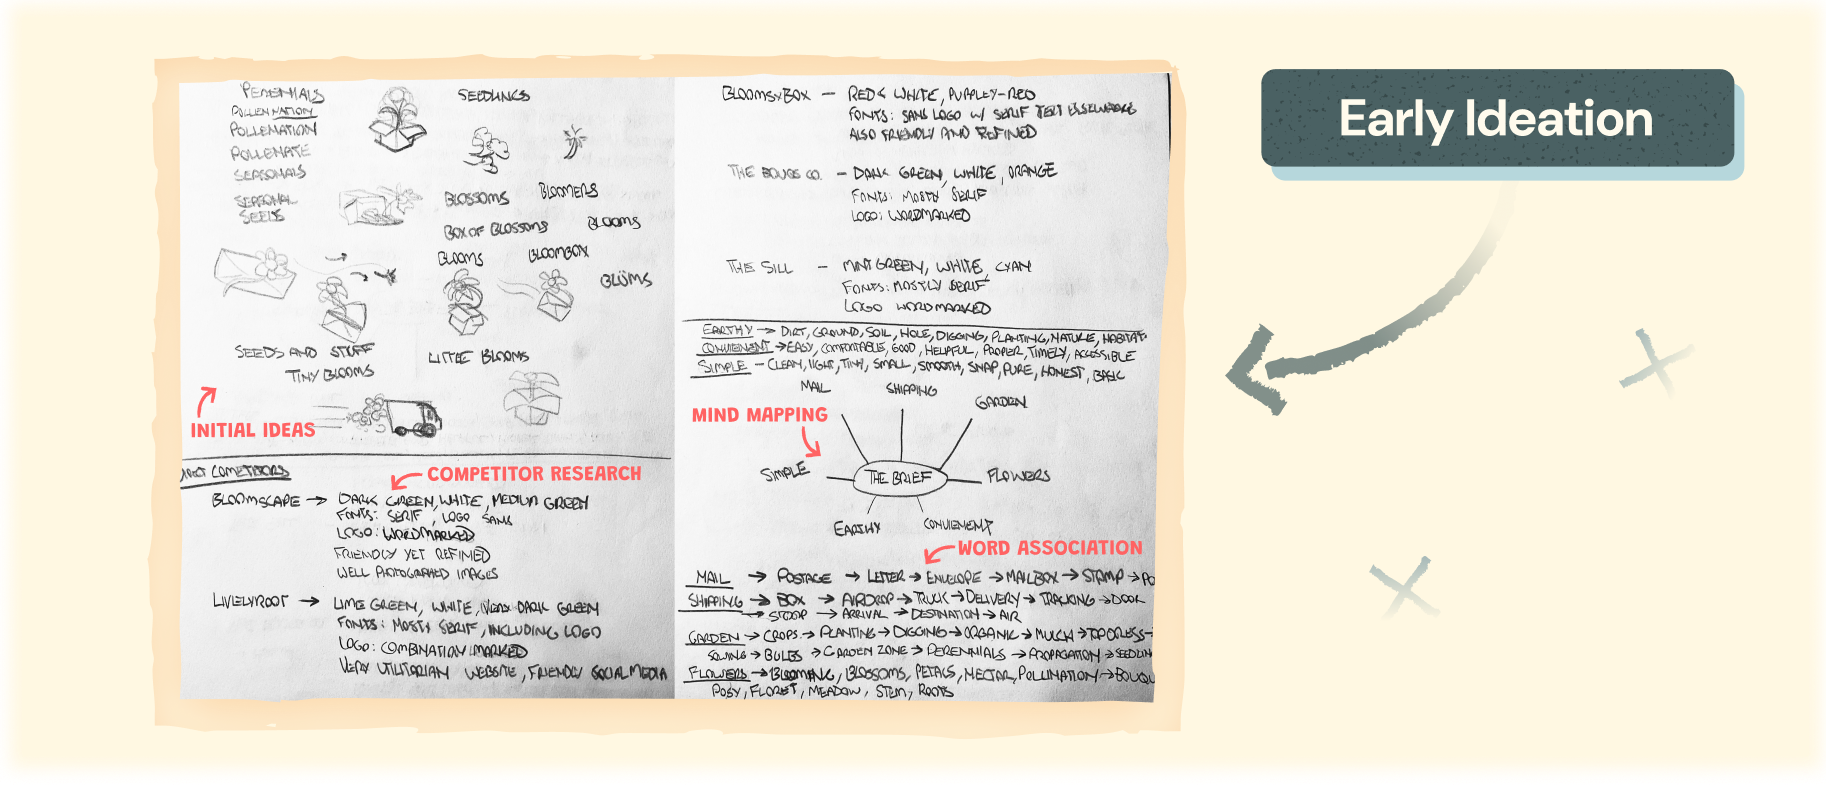 Early Ideation
PERENIALS
POLLENNATION
POLLENATION
POLLENATE
SEASONALS
SEASONAL
SEEDS
SEEDLINGS
BLOSSOMS
BLOOMERS
BOX OF BLOSSOMS
BLOOMS
BLOOMS
BLOOMBOX
BLÜMS
SEEDS AND STUFF
TINY BLOOMS
LITTLE BLOOMS
INITIAL IDEAS
COMPETITOR RESEARCH
BLOOMSCAPE → DARK GREEN, WHITE, MEDIUM GREEN
FONTS: SERIF, LOGO SANS
LOGO: WORDMARKED
FRIENDLY YET REFINED
WELL PHOTOGRAPHED IMAGES
LIVELYROOT → LIME GREEN, WHITE, VERY DARK GREEN
FONTS: MOSTY SERIF, INCLUDING LOGO
LOGO: COMBINATION MARKED
VERY UTILITARIAN WEBSITE, FRIENDLY SOCIAL MEDIA
BLOOMSYBOX — RED, WHITE, PURPLEY-RED
FONTS: SANS LOGO W/ SERIF TEXT ELSEWHERE
ALSO FRIENDLY AND REFINED
THE BOUQS CO. — DARK GREEN, WHITE, ORANGE
FONTS: MOSTY SERIF
LOGO: WORDMARKED
THE SILL — MINT GREEN, WHITE, CYAN
FONTS: MOSTLY SERIF
LOGO WORDMARKED
EARTHY → DIRT, GROUND, SOIL, HOLE, DIGGING, PLANTING, NATURE, HABITAT
CONVIENENT → EASY, COMFORTABLE, GOOD, HELPFUL, PROPER, TIMELY, ACCESSIBLE
SIMPLE — CLEAN, LIGHT, TINY, SMALL, SMOOTH, SNAP, PURE, HONEST, BASIC
MIND MAPPING
MAIL
SHIPPING
GARDEN
SIMPLE
THE BRIEF
FLOWERS
EARTHY
CONVIENENT
WORD ASSOCIATION
MAIL → POSTAGE → LETTER → ENVELOPE → MAILBOX → STAMP → PO
SHIPPING → BOX → AIRDROP → TRUCK → DELIVERY → TRACKING → DOOR
→ STOOP → ARRIVAL → DESTINATION → AIR
GARDEN → CROPS → PLANTING → DIGGING → ORGANIC → MULCH → TOPDRESS →
SOWING → BULBS → GARDEN ZONE → PERENNIALS → PROPAGATION → SEEDLIN
FLOWERS → BLOOMING, BLOSSOMS, PETALS, NECTAR, POLLINATION → BOUQU
POSY, FLORET, MEADOW, STEM, ROOTS